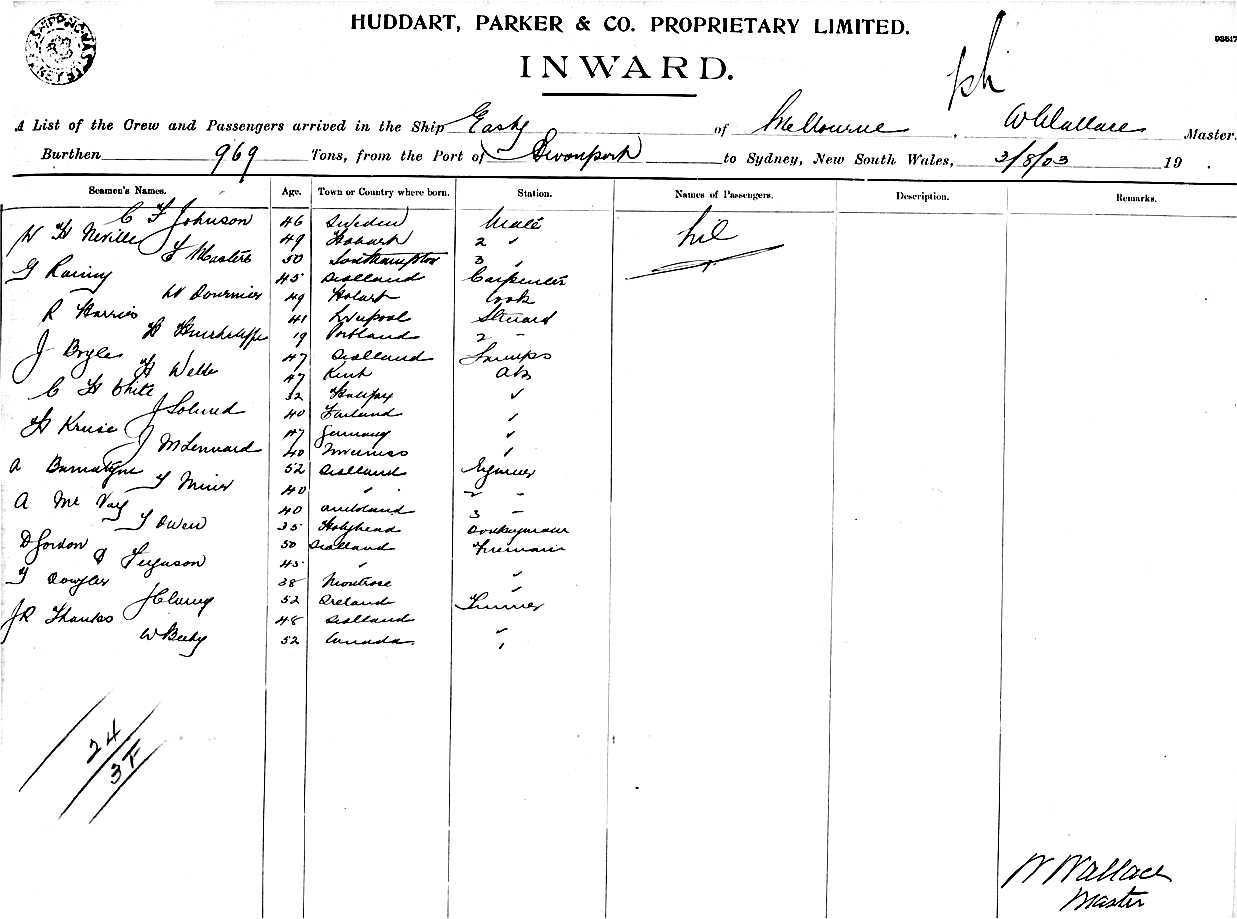 HUDDART, PARKER & CO. PROPRIETARY LIMITED.
INWARD.
A List of the Crew and Passengers arrived in the Ship Easby of Melbourne, W Wallace Master.
Burthen 969 Tons, from the Port of Devonport to Sydney, New South Wales, 3/8/03 19 .
Seamen's Names. Age. Town or Country where born. Station. Names of Passengers. Description. Remarks.
C F Johnson 46 Sweden Mate nil
W H Neville 49 Hobart 2 "
Masters 50 Southampton 3 "
G Rainy 45 Scotland Carpenter
W 49 Hobart Cook
R Harris 41 Liverpool Steward
H 19 Portland 2 "
J Boyle 47 Scotland Lamps
H Webb 47 Kent AB
C H White 32 Halifax "
J 40 "
H Kruse 47 Germany "
J McLennard 40 Inverness "
A 52 Scotland Engineer
40 " 2 "
A Mc 40 Auckland 3 "
Owen 35 Holyhead Donkeyman
D Gordon 50 Scotland Fireman
D Ferguson 45 " "
Douglas 38 Montrose "
J 52 Ireland Trimmer
J R Shanks 48 Scotland "
W 52 Canada "
24
W Wallace
Master